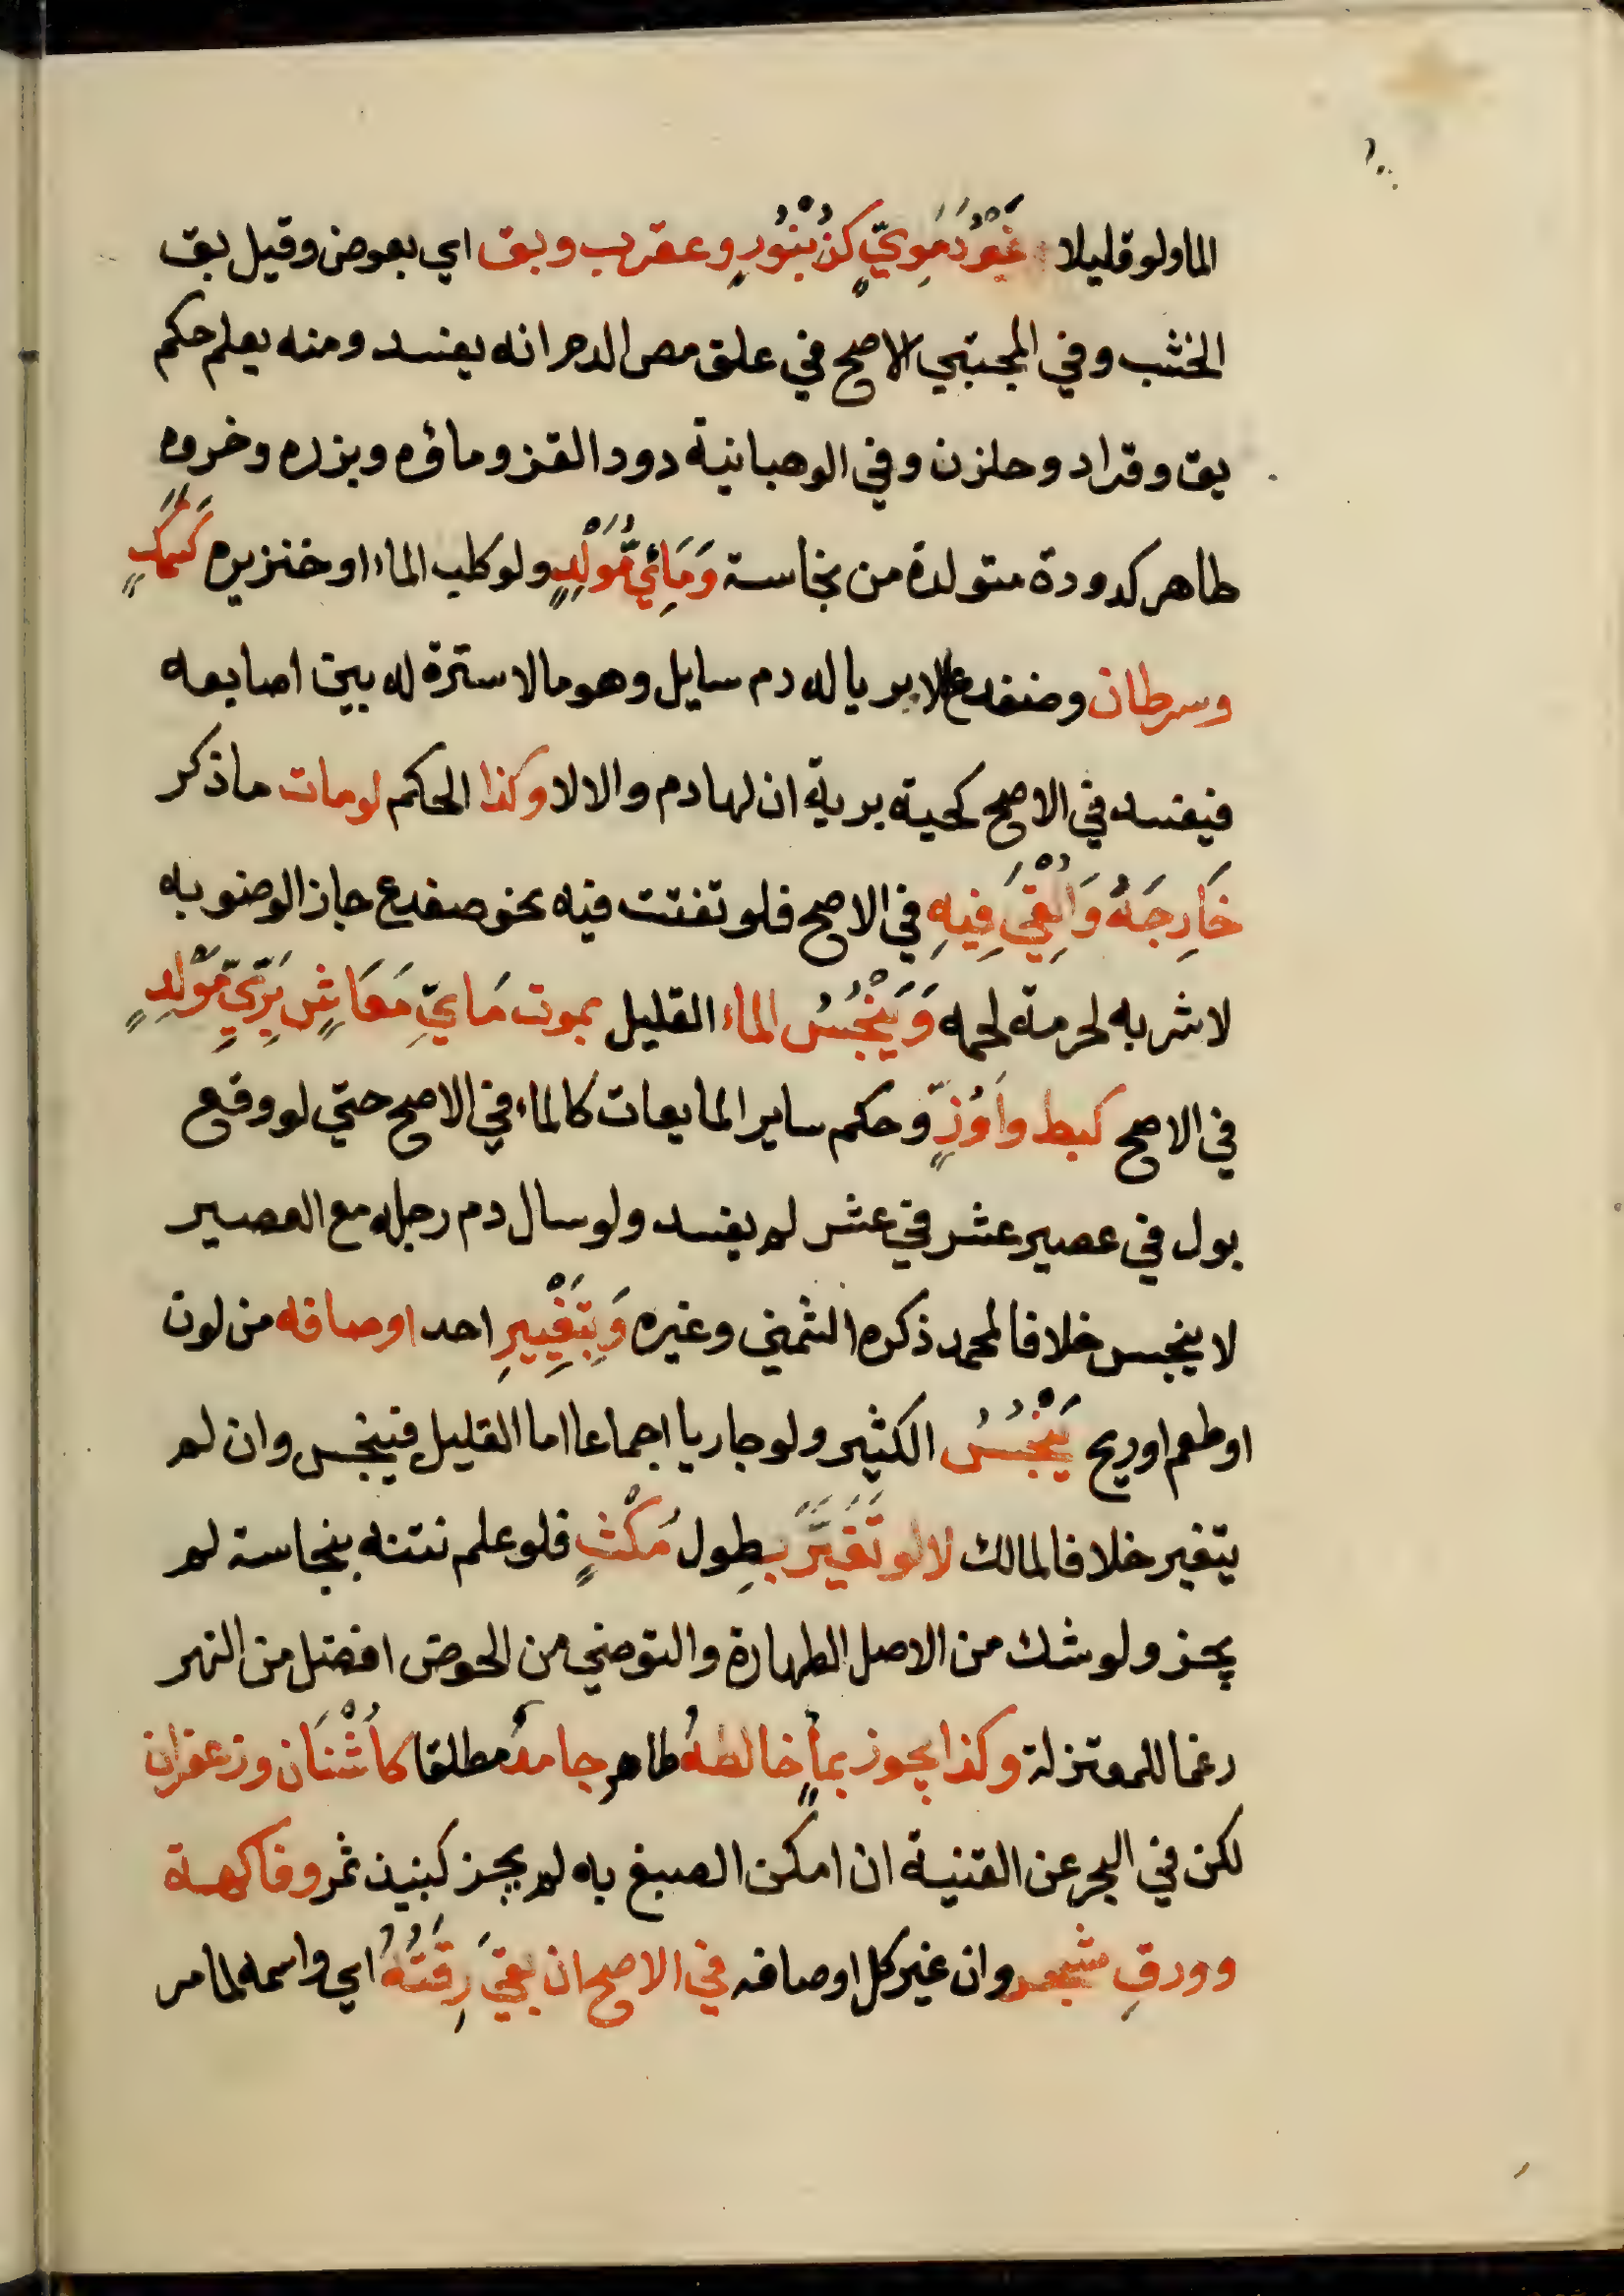 الما ولو قليلا غَيْرُ دَمَوِيٍّ كَزُنْبُورٍ وعقرب وبق اي بعوض وقيل بق
الخشب وفي المجتبي الاصح في علق مص الدم انه يفسد ومنه يعلم حكم
بق وقراد وحلزن وفي الوهبانية دود القز وماؤه وبزره وخروه
طاهر كدودة متولدة من نجاسة وَمَائِيّ مُّوَلِّدٍ ولو كلب الماء او خنزيره كَسَمَكٍ
وسرطان وضفدع الا بريا له دم سايل وهو ما لا سترة له بين اصابعه
فيفسد في الاصح كحية برية ان لها دم والا لا وكذا الحكم لو مات ما ذكر
خَارِجَهُ وَاُلْقِيَ فِيهِ في الاصح فلو تفتت فيه نحو ضفدع جاز الوضو به
لا شربه لحرمة لحمه وَيَنْجُسُ الماء القليل بموت مَايّ مَعَاشٍ بَرِّيِّ مَوْلِدٍ
في الاصح كبط واَوُزٍّ وحكم ساير المايعات كالماء في الاصح حتي لو وقع
بول في عصير عشر في عشر لم يفسد ولو سال دم رجله مع العصير
لا ينجس خلافا لمحمد ذكره الشمني وغيره وَبِتَغْيِيرِ احد اوصافه من لون
او طعم او ريح يَنْجُسُ الكثير ولو جاريا اجماعا اما القليل فينجس وان لم
يتغير خلافا لمالك لا لو تَغَيَّرَ بِطول مُكْثٍ فلو علم نتنه بنجاسة لم
يجز ولو شك من الاصل الطهارة والتوضي من الحوض افضل من النهر
رغما للمعتزلة وكذا يجوز بماٍ خالطهُ طاهر جامدُ مطلقا كاُشْنَان وزعفران
لكن في البحر عن القنية ان امكن الصبغ به لم يجز كنبيذ ثمر وفاكهة
وورقِ شجر وان غير كل اوصافه في الاصح ان بقيَ رِقَتُهُ اي واسمه لما مر